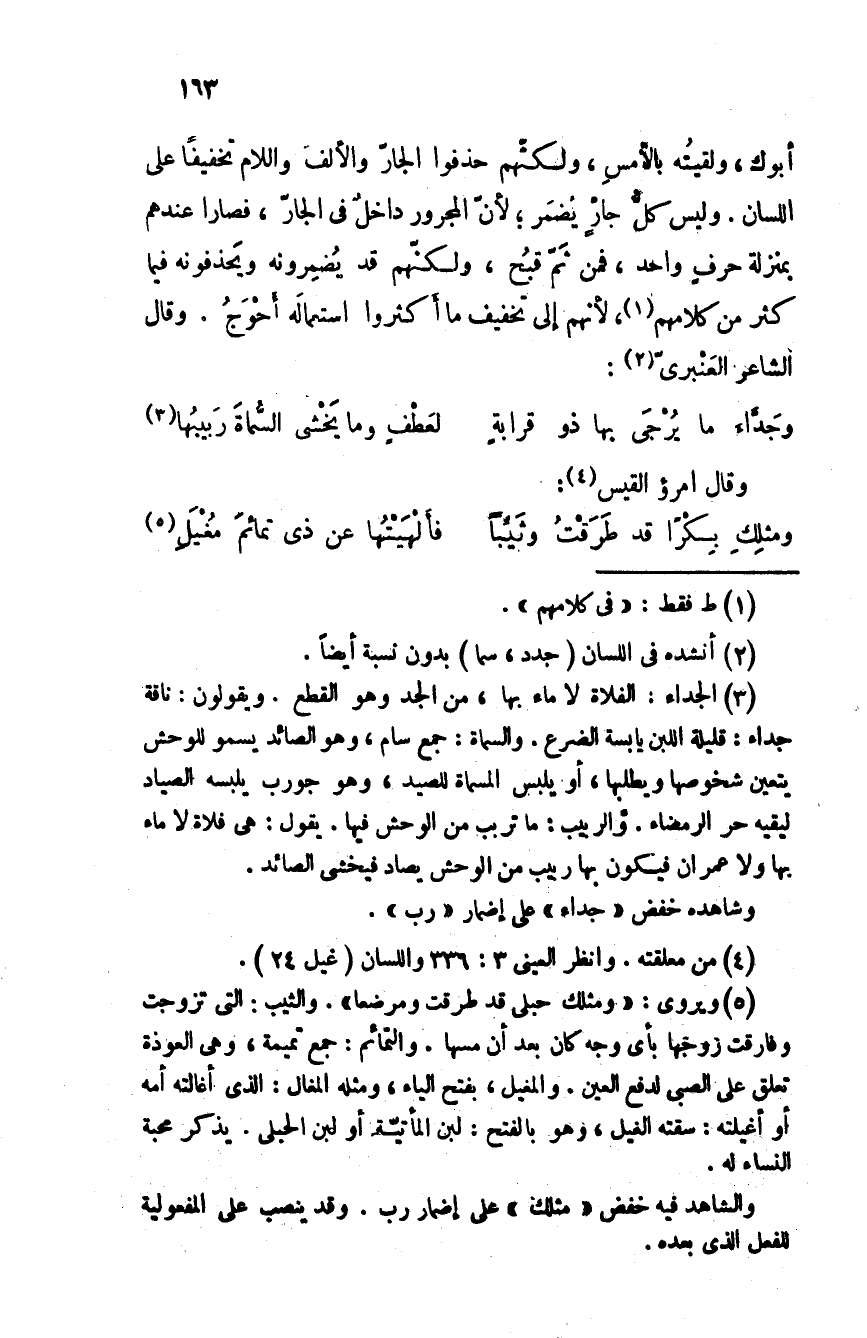 ١٦٣
أبوك، ولقيتُه بالأمسِ، ولـكنّهم حذفوا الجارّ والألفَ واللام تخفيفًا على
اللسان . وليس كلُّ جارٍّ يُضمَر ؛ لأنّ المجرور داخلٌ فى الجارّ ، فصارا عندهم
بمنزلة حرفٍ واحد ، فمن ثَمّ قبُح ، ولـكنّهم قد يُضمِرونه ويَحذفونه فيما
كثر من كلامهم(١)، لأنهم إلى تخفيف ما أكثروا استعمالَه أَحْوَجُ . وقال
الشاعر العَنْبرىّ(٢) :
وجَدَّاء ما يُرْجَى بها ذو قرابةٍ لعَطْفٍ وما يَخْشَى السُّماةَ رَبيبُها(٣)
وقال امرؤ القيس(٤):
ومثلِكِ بِكْرًا قد طَرَقْتُ وثَيِّبًا فأَلْهَيْتُها عن ذى تمائمَ مُغْيَلِ(٥)
(١) ط فقط : « فى كلامهم » .
(٢) أنشده فى اللسان ( جدد ، سما ) بدون نسبة أيضاً .
(٣) الجداء : الفلاة لا ماء بها ، من الجد وهو القطع . ويقولون : ناقة
جداء : قليلة اللبن يابسة الضرع . والسماة : جمع سام ، وهو الصائد يسمو للوحش
يتعين شخوصها ويطلبها ، أو يلبس المسماة للصيد ، وهو جورب يلبسه الصياد
ليقيه حر الرمضاء . والربيب : ما تربب من الوحش فيها . يقول : هى فلاة لا ماء
بها ولا عمران فيكون بها ربيب من الوحش يصاد فيخشى الصائد .
وشاهده خفض « جداء » على إضمار « رب » .
(٤) من معلقته . وانظر العينى ٣ : ٣٣٦ واللسان ( غيل ٢٤ ) .
(٥) ويروى : « ومثلك حبلى قد طرقت ومرضعا» . والثيب : التى تزوجت
وفارقت زوجها بأى وجه كان بعد أن مسها . والتمائم : جمع تميمة ، وهى العوذة
تعلق على الصبى لدفع العين . والمغيل ، بفتح الياء ، ومثله المغال : الذى أغالته أمه
أو أغيلته : سقته الغيل ، وهو بالفتح : لبن المأتيّة أو لبن الحبلى . يذكر محبة
النساء له .
والشاهد فيه خفض « مثلك » على إضمار رب . وقد ينصب على المفعولية
للفعل الذى بعده .